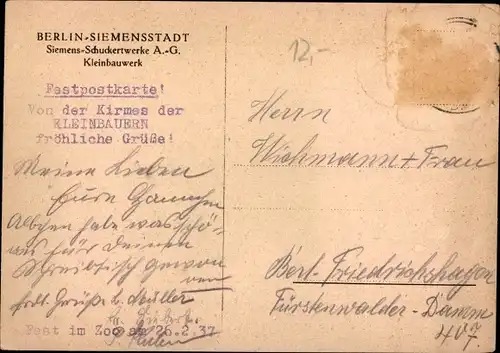 BERLIN-SIEMENSSTADT
Siemens-Schuckertwerke A.-G.
Kleinbauwerk
Festpostkarte!
Von der Kirmes der
KLEINBAUERN
fröhliche Grüße!
Meine Lieben
Eure
habe was schö-
nes für Deinen
Schreibtisch gewon
nen
Grüße
Fest im Zoo am 26.2.37
12,-
Herrn
Wichmann + Frau
Berl. Friedrichshagen
Fürstenwalder-Damm
407.